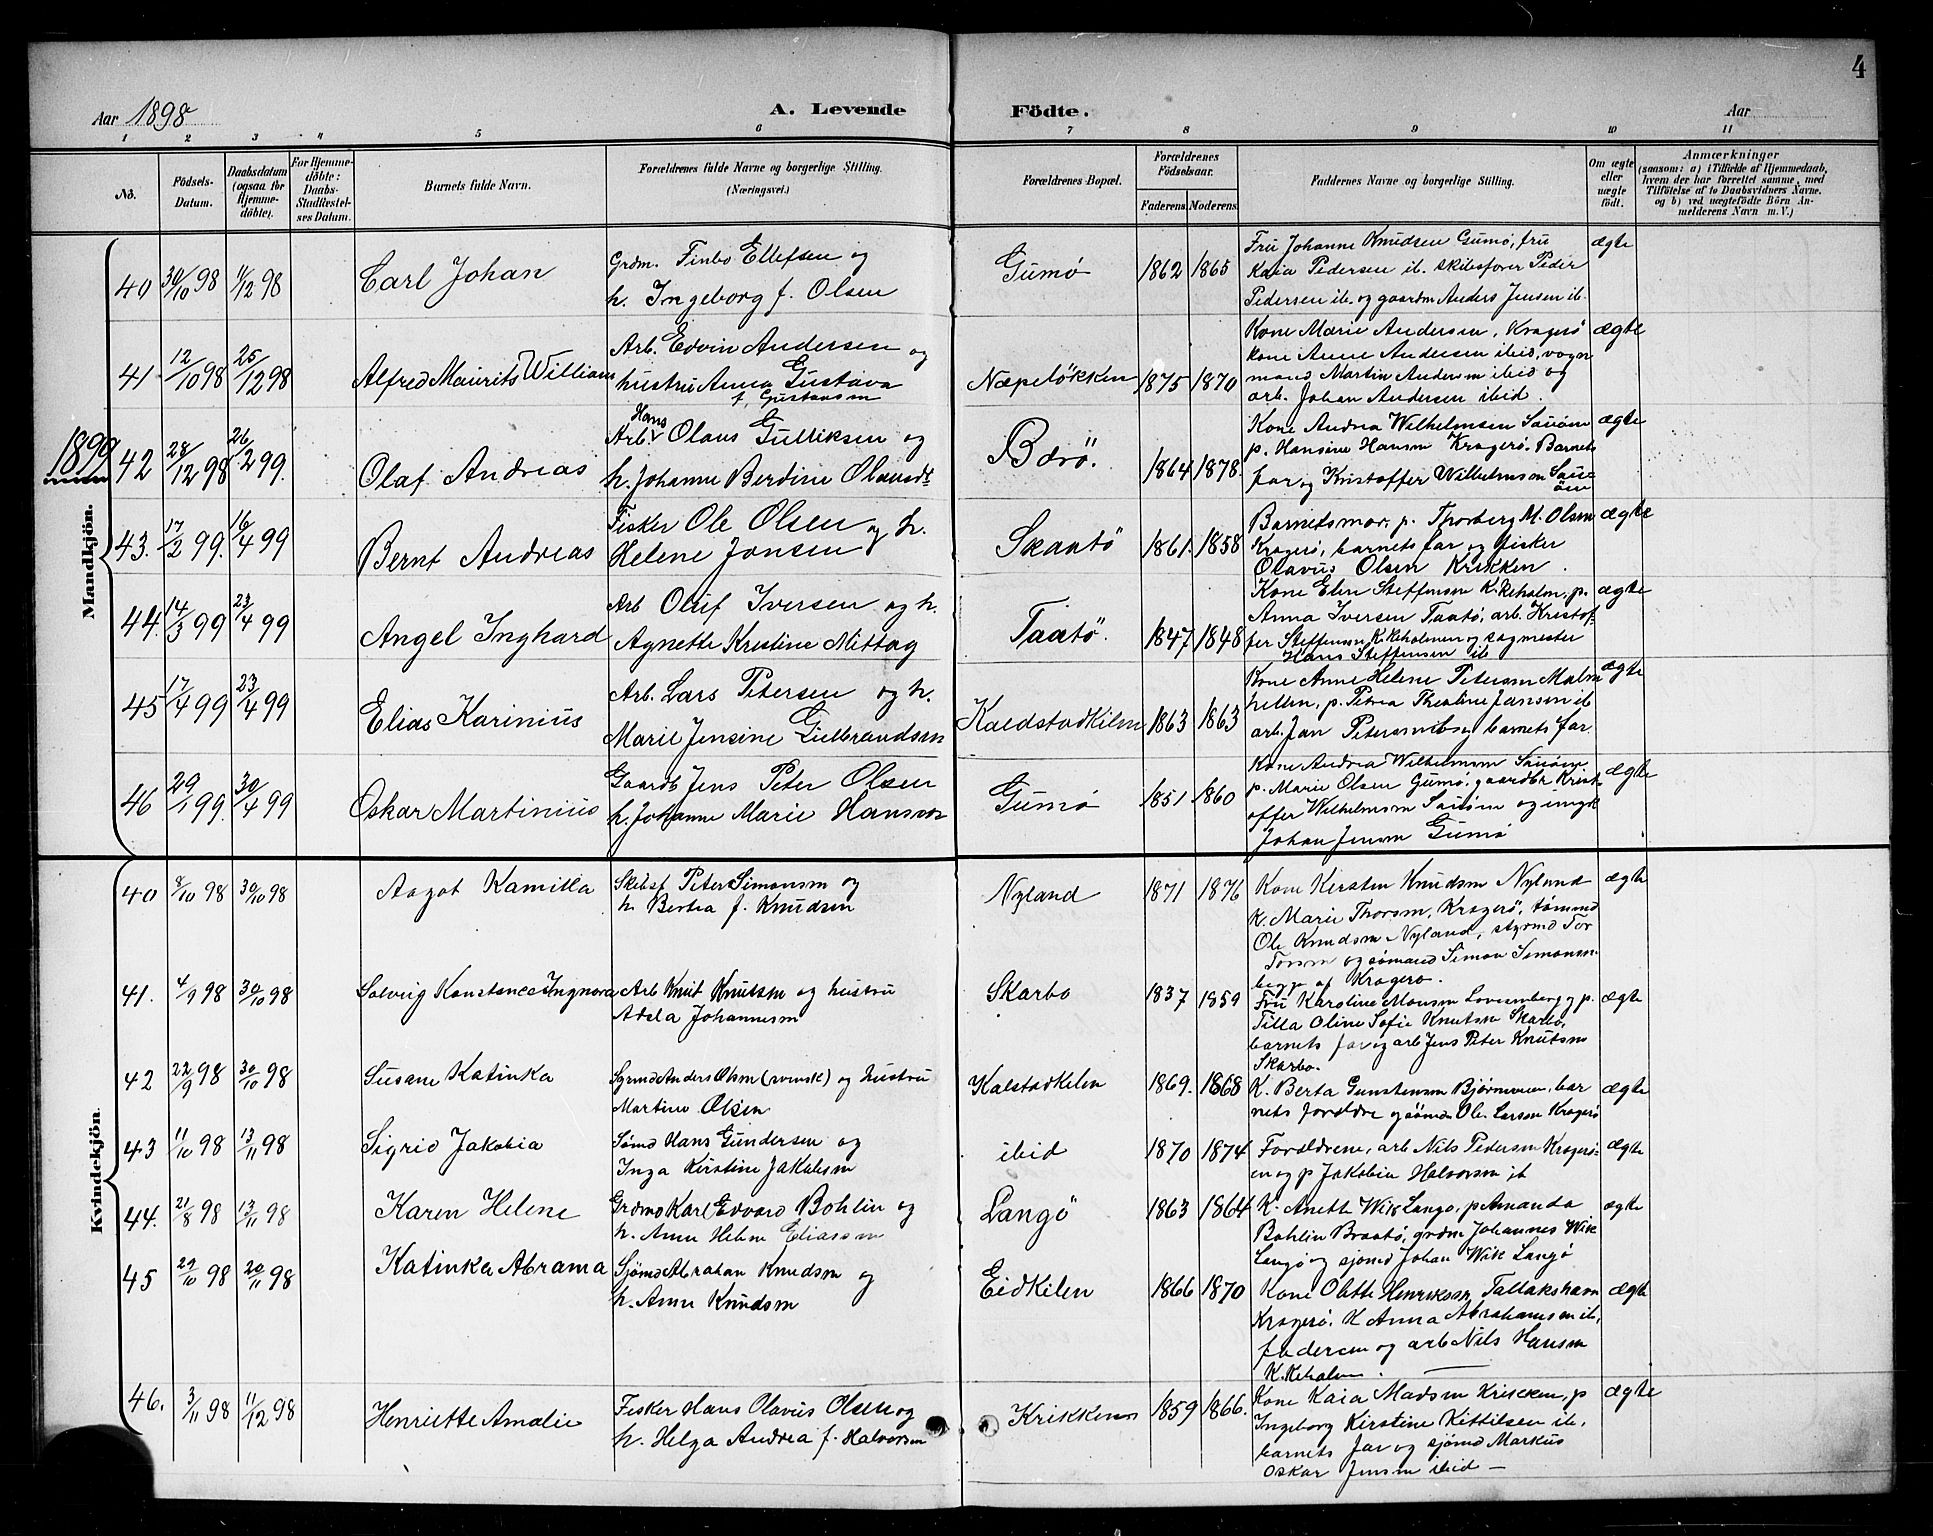 4
Aar 1898
A. Levende
Födte.
Aar
1 2 3 4 5 6 7 8 9 10 11
No.
Födsels-
Datum.
Daabsdatum
(ogsaa for
Hjemme-
döbte).
For Hjemme-
döbte:
Daabs-
Stadfæstel-
ses Datum.
Barnets fulde Navn.
Forældrenes fulde Navne og borgerlige Stilling.
(Næringsvei.)
Forældrenes Bopæl.
Forældrenes
Födselsaar.
Faderens. Moderens.
Faddernes Navne og borgerlige Stilling.
Om ægte
eller
uægte
födt.
Anmærkninger
(saasom: a) i Tilfælde af Hjemmedaab,
hvem der har forrettet samme, med
Tilföielse af to Daabsvidners Navne.
og b) ved uægtefödte Börn An-
melderens Navn m. V.)
Mandkjön.
40 30/10 98 11/12 98 Carl Johan
Grdm. Finbo Ellefsen og
h. Ingeborg f. Olsen
Gumø 1862 1865
Fru Johanne Knudsen Gumø, fru
Kaia Pedersen ib. skibsfører Peder
Pedersen ib. og gaardm Anders Jensen ib.
ægte
41 12/10 98 25/12 98 Alfred Maurits William
Arb. Edvin Andersen og
hustru Anna Gustava
f. Gustavsen
Næpeløkken 1875 1870
Kone Marie Andersen, Kragerö
kone Anne Andersen ibid, vogn
mand Martin Andersen ibid og
arb. Johan Andersen ibid.
ægte
1899
42 28/12 98 26/2 99. Olaf Andreas
Arb. Hans Olaus Gulliksen og
h. Johanne Berdine Olausdt
Bærö. 1864 1878.
Kone Andrea Wilhelmsen Sauöen
p. Hansine Hansen Kragerö. Barnets
far og Kristoffer Wilhelmsen Sau-
öen
ægte
43. 17/2 99. 16/4 99 Bernt Andreas
Fisker Ole Olsen og h.
Helene Jonsen
Skaatö 1861. 1858
Barnets mor, p. Thorberg M. Olsen
Kragerö, barnets far og fisker
Olavus Olsen Krikken.
ægte
44. 14/3 99 23/4 99 Angel Inghard
Arb Oluf Iversen og h.
Agnette Kristine Mittag
Taatö. 1847 1848
Kone Elen Steffensen K.keholm, p.
Anna Iversen Taatö, arb. Kristof-
fer Steffensen K.keholmen og sagmester
Hans Steffensen ib
ægte
45 17/4 99 23/4 99 Elias Karinius
Arb. Lars Petersen og h.
Marie Jensine Gulbrandsen
Kaldstadkilen 1863 1863
Kone Anne Helene Petersen Malm
hellen, p. Petrea Thealine Jansen ib
arb. Jan Petersen ib og barnets far.
ægte
46 29/1 99. 30/4 99 Oskar Martinius
Gaardb Jens Peter Olsen
h. Johanne Marie Hansen
Gumø 1851 1860
Kone Andrea Wilhelmsen Sauöen
p. Marie Olsen Gumö, gaardbr Krist-
offer Wilhelmsen Sauöen og ungk
Johan Jensen Gumø
ægte
Kvindekjön.
40 8/10 98 30/10 98 Aagot Kamilla
Skibsf Peter Simonsen og
h. Bertea f. Knudsen
Nyland 1871 1876
Kone Kirsten Knudsen Nyland
K. Marie Thorsen, Kragerö, tømmd
Ole Knudsen Nyland, styrmd Tor
Torsen og sømand Simon Simonsen
begge af Kragerø.
ægte
41. 4/9 98 30/10 98 Solveig Konstance Ingnora
Arb Knut Knutsen og hustru
Adela Johannesen
Skarbo 1837 1859
Fru Karoline Monsen Lovisenberg og p.
Tilla Oline Sofie Knutsen Skarbo,
barnets far og arb Jens Peter Knutsen
Skarbo.
ægte
42 22/9 98 30/10 98 Susane Katinka
Syrmd Anders Olsen (svensk) og hustru
Martine Olsen
Kalstadkilen 1869. 1868
K. Berta Gunstensen Bjørneveien, bar
nets foreldre og sömd Ole Larsen Kragerö
ægte
43 11/10 98 13/11 98 Sigrid Jakobia
Sömd Hans Gundersen og
Inga Kirstine Jakobsen
ibid 1870 1874
Foreldrene, arb Nils Pedersen Kragerö
en og p Jakobia Halvorsen ib
ægte
44. 21/8 98 13/11 98 Karen Helene
Grdmd Karl Edvard Bohlin og
h. Anne Helene Eliassen
Langö 1863 1864
K. Anette Wik Langö, p Amanda
Bohlin Braatö, grdm Johannes Wik
Langö og sjømd Johan Wik Langö
ægte
45 29/10 98 20/11 98 Katinka Abrama
Sjömd Abraham Knudsen og
h. Anne Knudsen
Eidkilen 1866 1870
Kone Olette Henriksen, Tallakshavn
Kragerö, K Anna Abrahamsen ib,
faderen og arb Nils Hansen
K.keholmen.
ægte
46. 3/11 98 11/12 98 Henriette Amalie
Fisker Hans Olavus Olsen og
h. Helga Andrea f. Halvorsen
Krikken 1859 1866.
Kone Kaia Madsen Krikken, p
Ingeborg Kirstine Kittilsen ib,
barnets far og sjömd Markus
Oskar Jensen ibid –
ægte